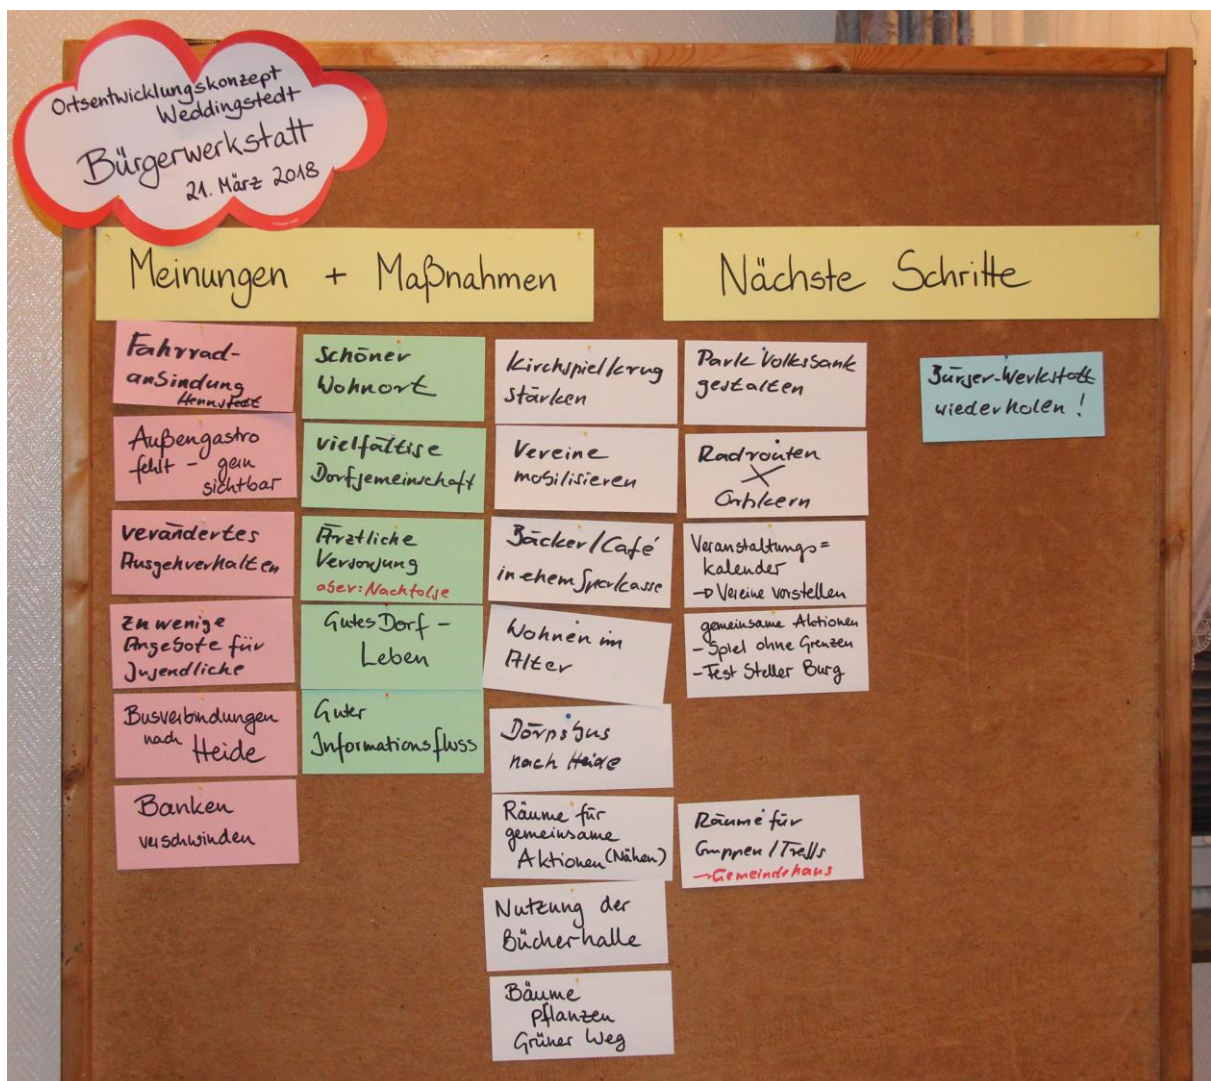 Ortsentwicklungskonzept
Weddingstedt
Bürgerwerkstatt
21. März 2018
Meinungen + Maßnahmen
Nächste Schritte
Fahrrad-
anbindung
Hennstedt
Außengastro
fehlt - gern
sichtbar
verändertes
Ausgehverhalten
zu wenige
Angebote für
Jugendliche
Busverbindungen
nach Heide
Banken
verschwinden
Schöner
Wohnort
vielfältige
Dorfgemeinschaft
Ärztliche
Versorgung
aber: Nachfolge
Gutes Dorf-
Leben
Guter
Informationsfluss
Kirchspielkrug
stärken
Vereine
mobilisieren
Bäcker/Café
in ehem Sparkasse
Wohnen im
Alter
Dörpsbus
nach Heide
Räume für
gemeinsame
Aktionen (Nähen)
Nutzung der
Bücherhalle
Bäume
pflanzen
Grüner Weg
Park Volksbank
gestalten
Radrouten
X
Ortskern
Veranstaltungs=
kalender
→ Vereine vorstellen
gemeinsame Aktionen
- Spiel ohne Grenzen
- Fest Steller Burg
Räume für
Gruppen/Treffs
→ Gemeindehaus
Bürger-Werkstatt
wiederholen!